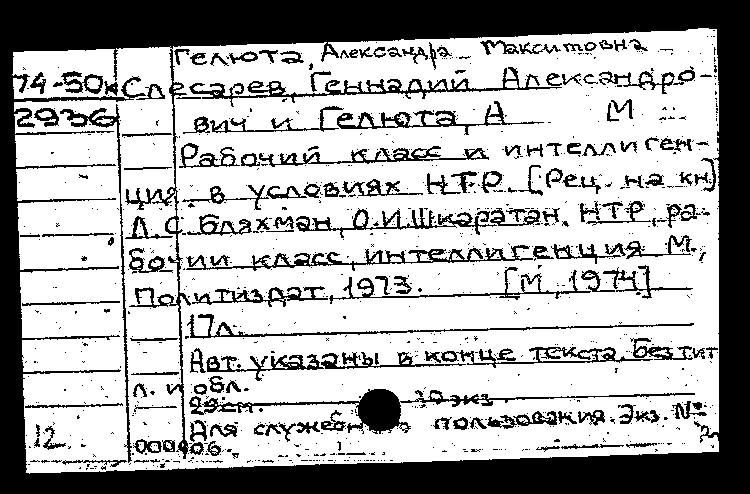 Гелюта, Александра Максимовна
74-50к Слесарев, Геннадий Александро-
2936 вич и Гелюта, А М
Рабочий класс и интеллиген-
ция в условиях НТР. [Рец. на кн
Л.С. Бляхман, О.И. Шкаратан. НТР, ра-
бочий класс, интеллигенция М.,
Политиздат, 1973. [М, 1974]
17л.
Авт. указаны в конце текста. Без тит
л. и обл.
29см. 30 экз.
12 Для служебного пользования. Экз. №
000406.